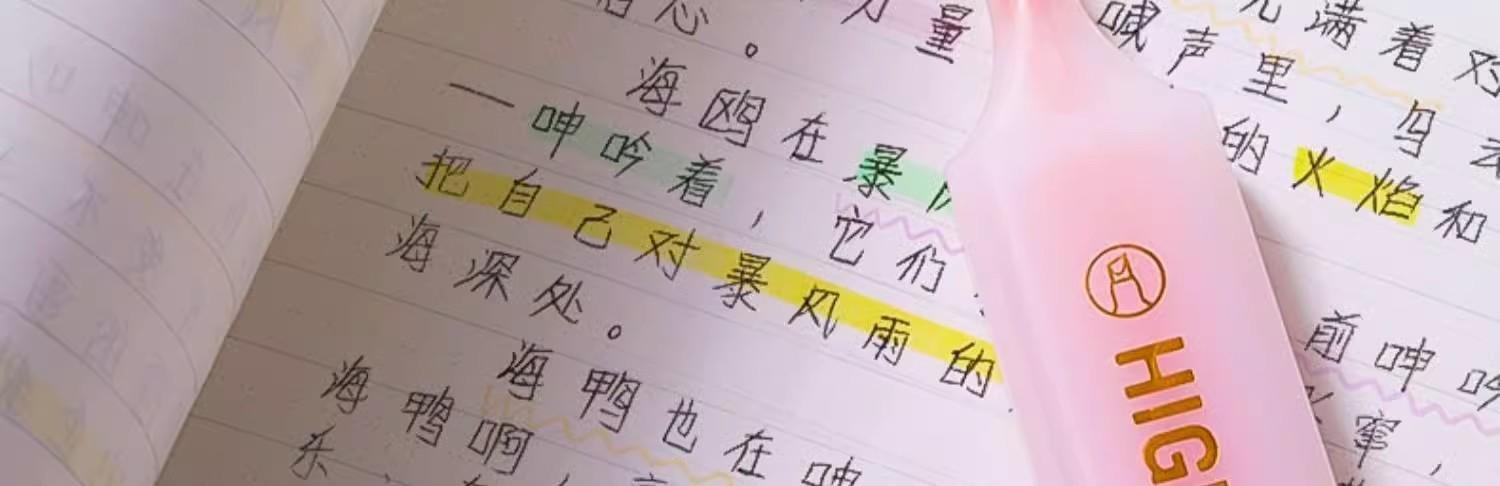 满着对
喊声里，乌
力量
的火焰和
心。
海鸥在暴
一呻吟着，它们
前呻吟
把自己对暴风雨的
窜，
海深处。
海鸭也在呻
海鸭啊
乐
HIG